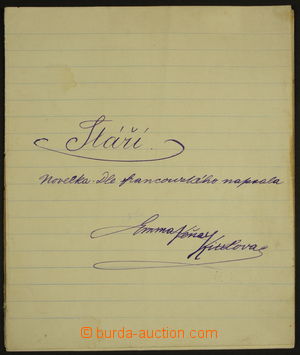 Stáří.
Novelka. Dle francouzského napsala
Emma
© burda-auction.com